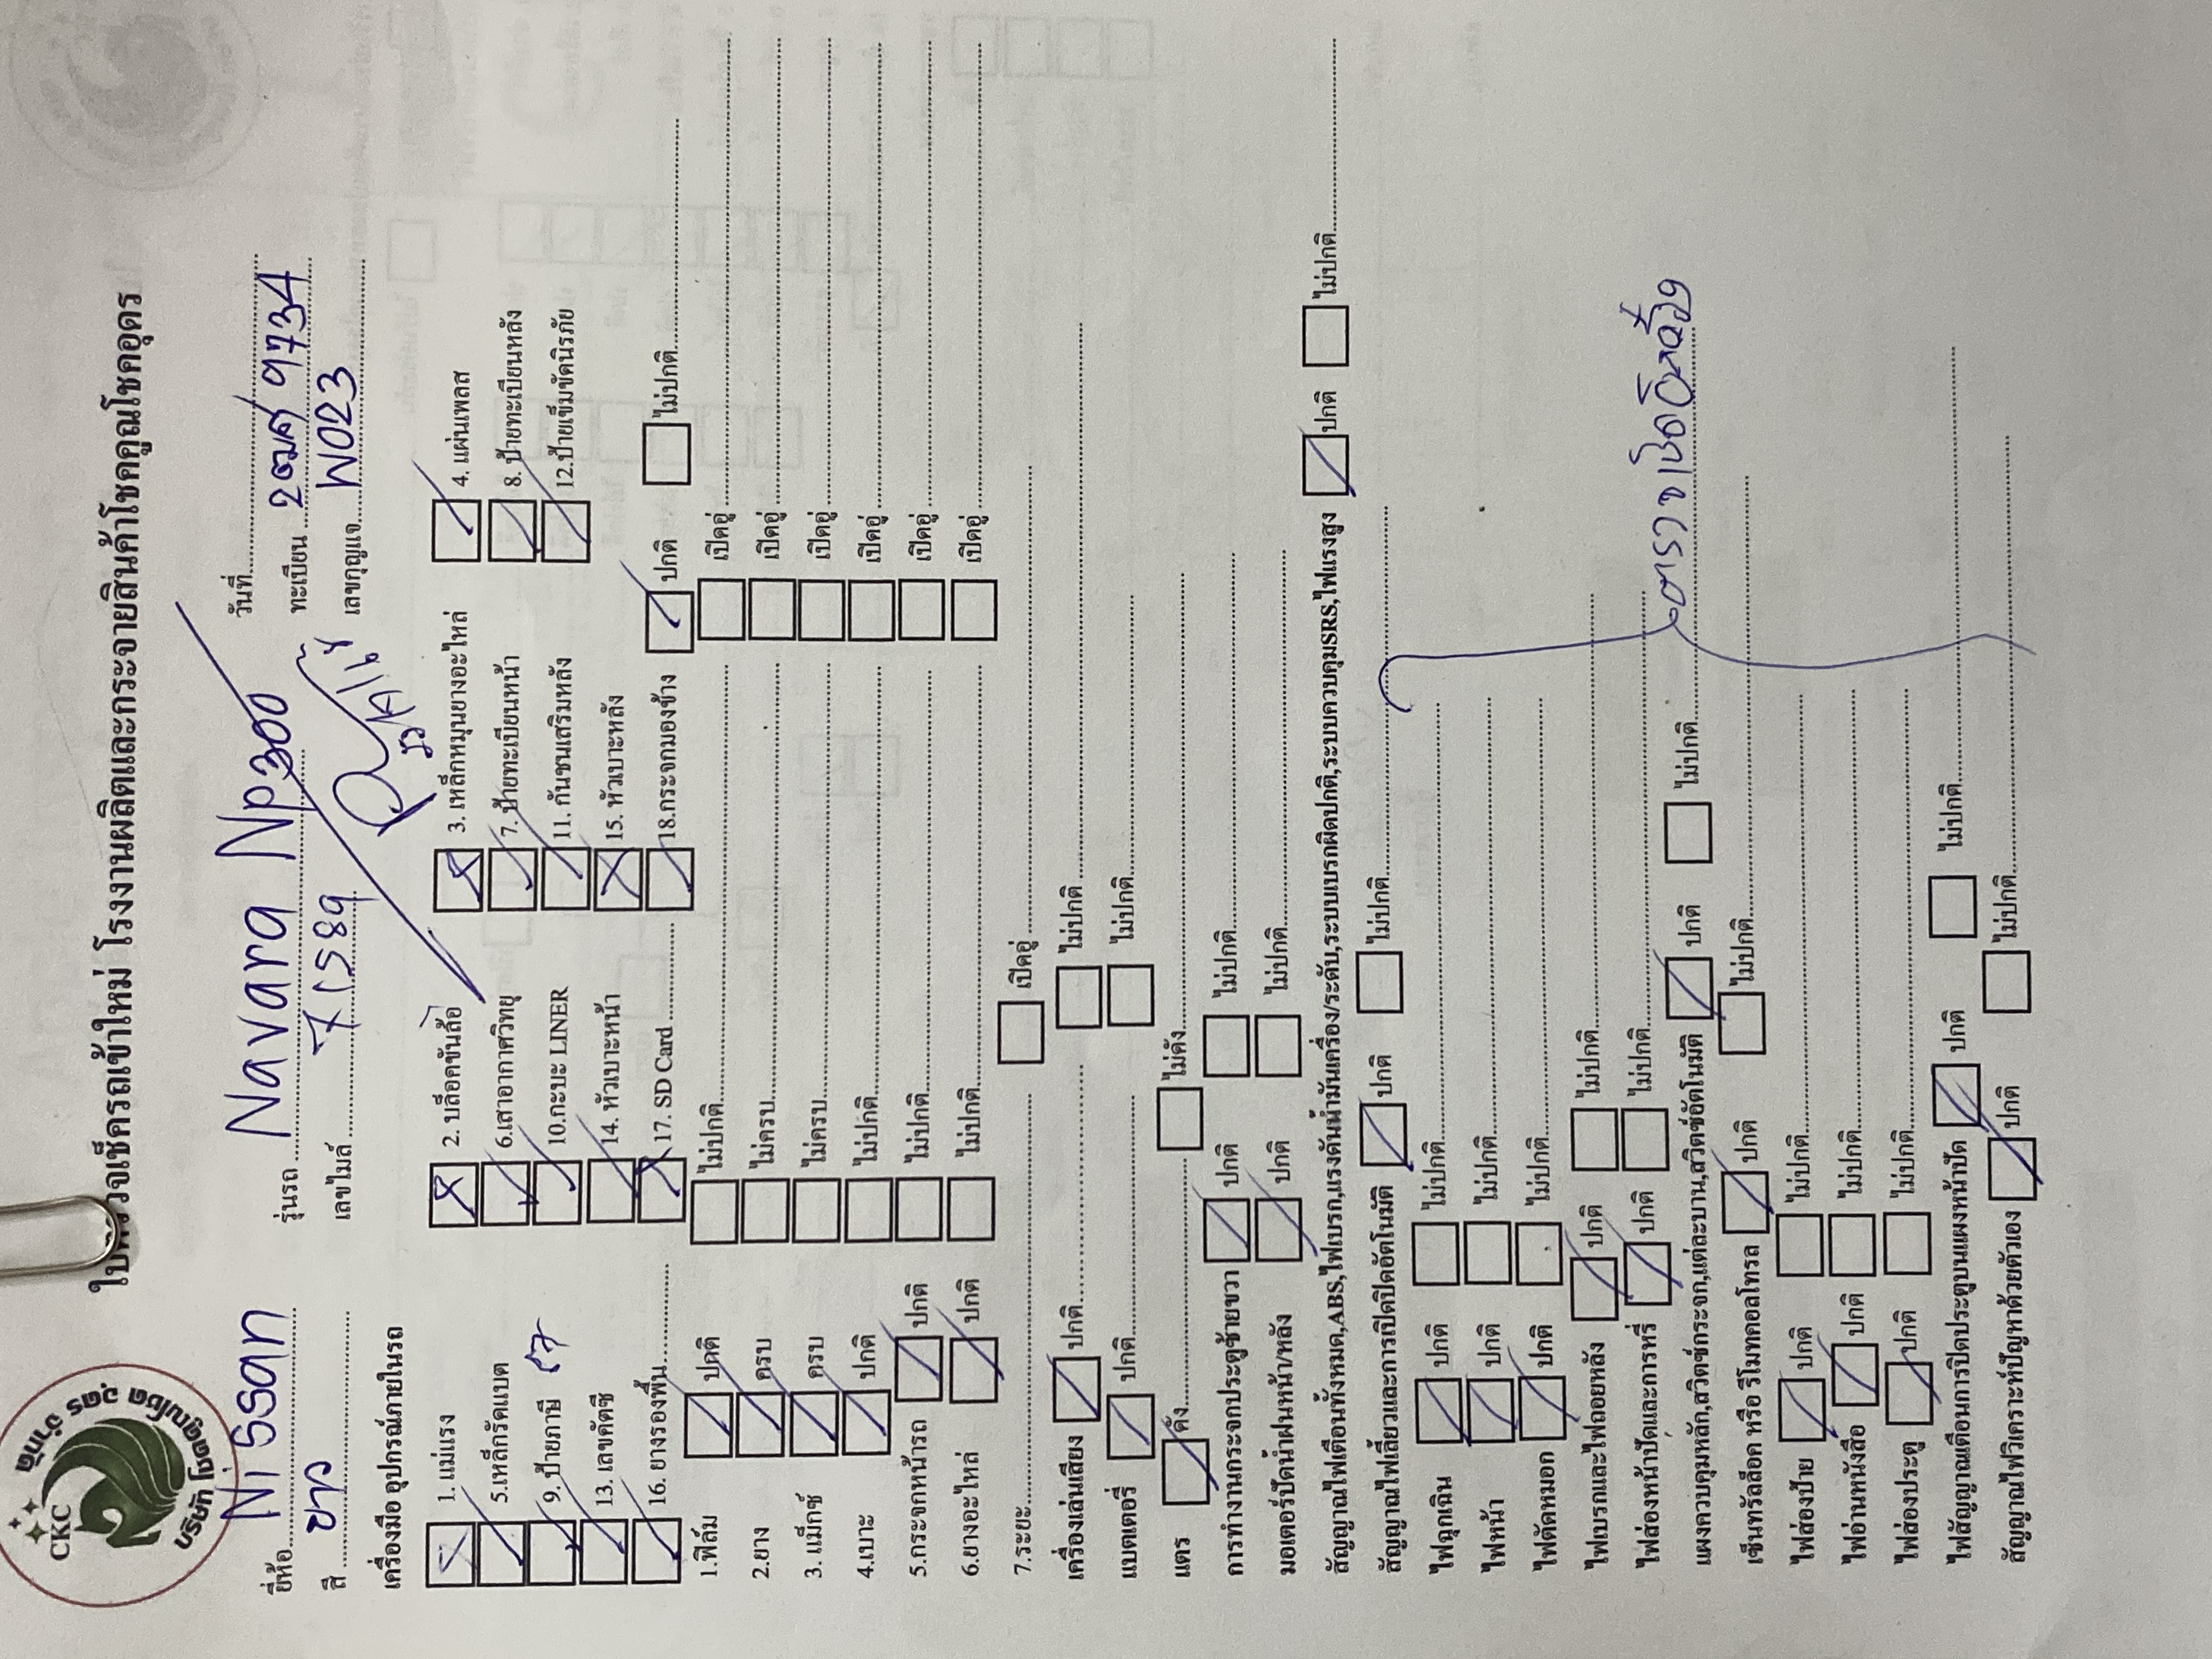 CKC
บริษัท โชคคูณโชค อุดร จำกัด
เช็ครถเข้าใหม่ โรงงานผลิตและกระจายสินค้าโชคคูณโชคอุดร
ยี่ห้อ Nissan รุ่นรถ Navara Np300 วันที่
ทะเบียน 2ฒศ 9734
สี ขาว เลขไมล์ 71589 เลขกุญแจ W023
เครื่องมือ อุปกรณ์ภายในรถ
1. แม่แรง 2. บล็อคขันล้อ 3. เหล็กหมุนยางอะไหล่ 4. แผ่นเพลส
5.เหล็กรัดแบต 6.เสาอากาศวิทยุ 7. ป้ายทะเบียนหน้า 8. ป้ายทะเบียนหลัง
9. ป้ายภาษี 67 10.กะบะ LINER 11. กันชนเสริมหลัง 12.ป้ายเข็มขัดนิรภัย
13. เลขคัตซี 14. หัวเบาะหน้า 15. หัวเบาะหลัง
16. ยางรองพื้น 17. SD Card 18.กระจกมองข้าง ปกติ ไม่ปกติ
1.ฟิล์ม ปกติ ไม่ปกติ เปิดอู่
2.ยาง ครบ ไม่ครบ เปิดอู่
3. แม็กซ์ ครบ ไม่ครบ เปิดอู่
4.เบาะ ปกติ ไม่ปกติ เปิดอู่
5.กระจกหน้ารถ ปกติ ไม่ปกติ เปิดอู่
6.ยางอะไหล่ ปกติ ไม่ปกติ เปิดอู่
7.ระยะ เปิดอู่
เครื่องเล่นเสียง ปกติ ไม่ปกติ
แบตเตอรี่ ปกติ ไม่ปกติ
แตร ดัง ไม่ดัง
การทำงานกระจกประตูซ้ายขวา ปกติ ไม่ปกติ
มอเตอร์ปัดน้ำฝนหน้า/หลัง ปกติ ไม่ปกติ
สัญญาณไฟเตือนทั้งหมด,ABS,ไฟเบรก,แรงดันน้ำมันเครื่อง/ระดับ,ระบบเบรกผิดปกติ,ระบบควบคุมSRS,ไฟแรงสูง ปกติ ไม่ปกติ
สัญญาณไฟเลี้ยวและการเปิดปิดอัตโนมัติ ปกติ ไม่ปกติ
ไฟฉุกเฉิน ปกติ ไม่ปกติ
ไฟหน้า ปกติ ไม่ปกติ
ไฟตัดหมอก ปกติ ไม่ปกติ
ไฟเบรกและไฟถอยหลัง ปกติ ไม่ปกติ
ไฟส่องหน้าปัดและการหรี่ ปกติ ไม่ปกติ
แผงควบคุมหลัก,สวิตซ์กระจก,แต่ละบาน,สวิตซ์อัตโนมัติ ปกติ ไม่ปกติ
เซ็นทรัลล็อค หรือ รีโมทคอลโทรล ปกติ ไม่ปกติ
ไฟส่องป้าย ปกติ ไม่ปกติ
ไฟอ่านหนังสือ ปกติ ไม่ปกติ
ไฟส่องประตู ปกติ ไม่ปกติ
ไฟสัญญาณเตือนการปิดประตูบนแผงหน้าปัด ปกติ ไม่ปกติ
สัญญาณไฟวิเคราะห์ปัญหาด้วยตัวเอง ปกติ ไม่ปกติ